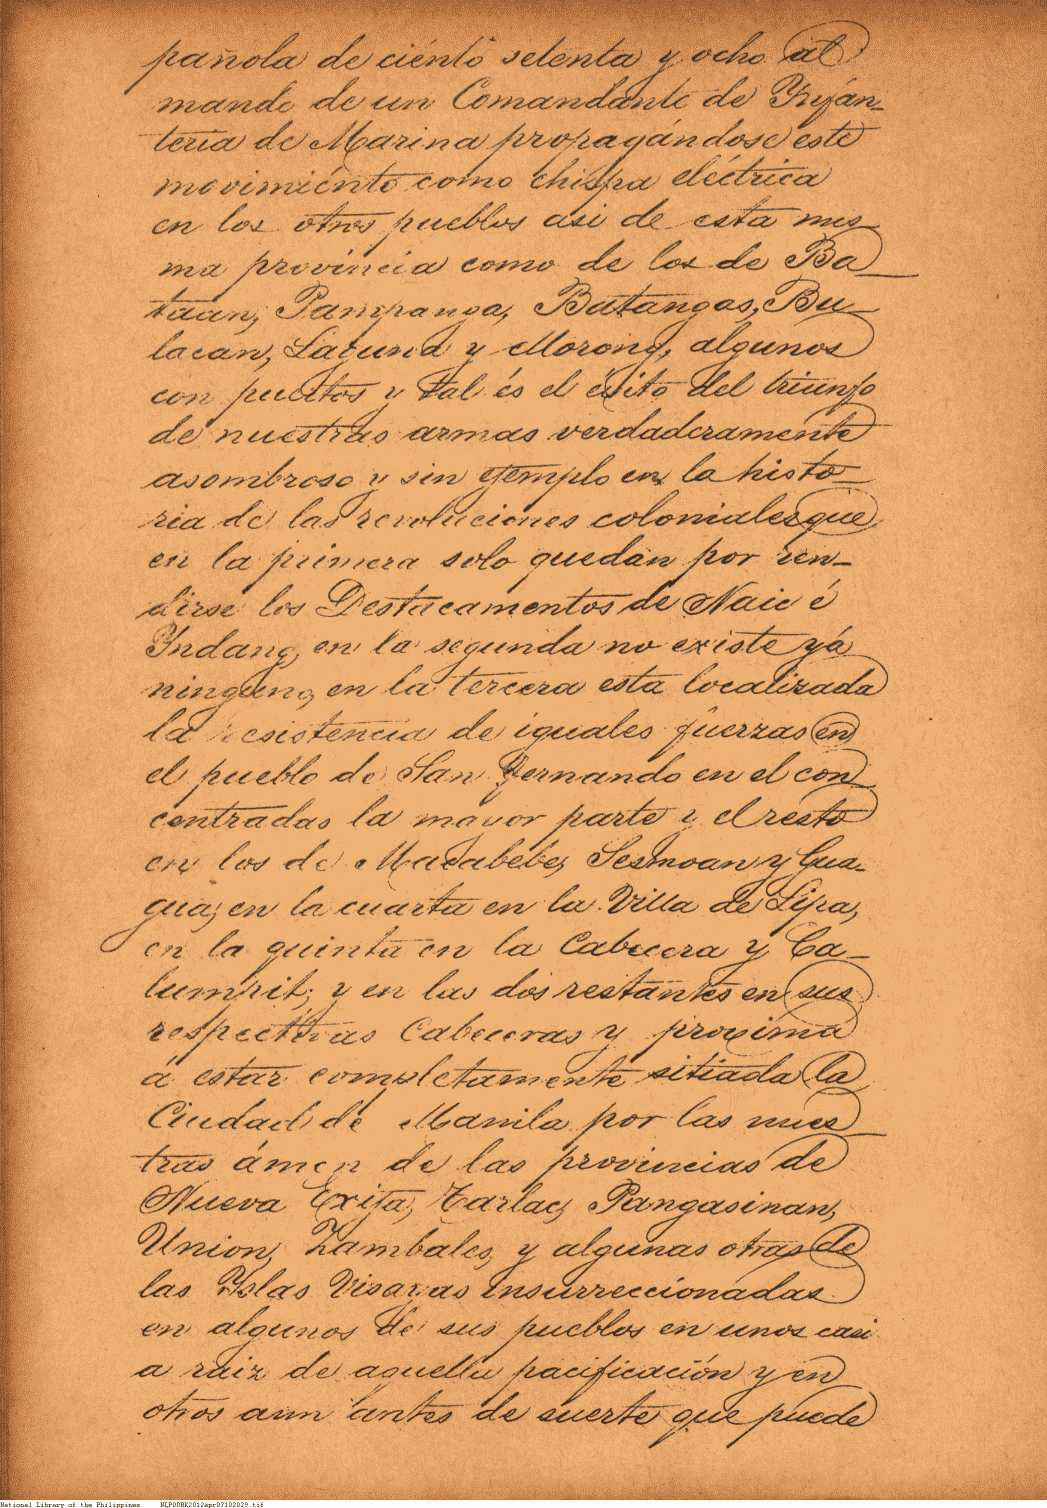 pañola de ciento setenta y ocho al
mando de un Comandante de Ynfán-
teria de Marina propagándose este
movimiento como chispa eléctrica
en los otros pueblos asi de esta mis
ma provincia como de los de Ba
taan, Pampanga, Batangas, Bu-
lacan, Laguna y Morong, algunos
con puertos y tal és el éxito del triunfo
de nuestras armas verdaderamente
asombroso y sin ejemplo en la histo-
ria de las revoluciones coloniales que
en la primera solo quedan por ren-
dirse los Destacamentos de Naic é
Yndang, en la segunda no existe yá
ninguno, en la tercera esta localizada
la resistencia de iguales fuerzas en
el pueblo de San Fernando en el con
centradas la mayor parte y el resto
en los de Macabebe, Sesmoan y Gua-
gua; en la cuarta en la Villa de Lipa,
en la quinta en la Cabecera y Ca-
lumpit; y en las dos restantes en sus
respectivas Cabeceras y proxima
á estar completamente sitiada la
Ciudad de Manila por las nues
tras ámen de las provincias de
Nueva Exija, Tarlac, Pangasinan,
Union, Zambales, y algunas otras de
las Yslas Visayas insurreccionadas
en algunos de sus pueblos en unos casi
a raiz de aquella pacificación y en
otros aun antes de suerte que puede
National Library of the Philippines NLPOOBK2012apr07102029.tif